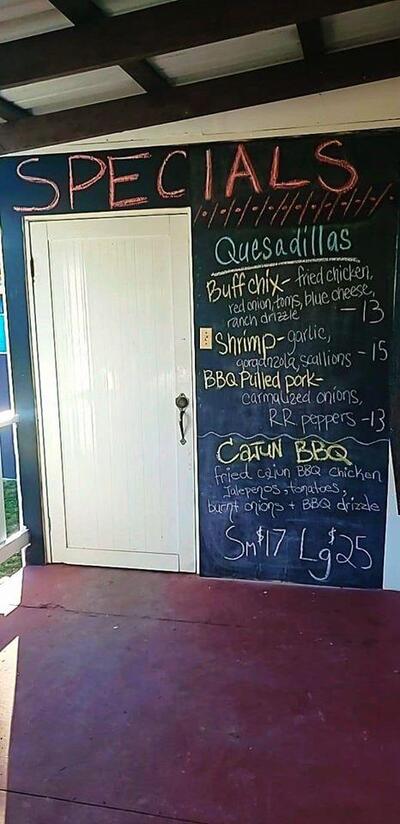 SPECIALS
Quesadillas
Buff chix- fried chicken,
red onion, toms, blue cheese,
ranch drizzle - 13
Shrimp - garlic,
gorgonzola, scallions - 15
BBQ Pulled pork-
carmalized onions,
R.R. peppers -13
CAJUN BBQ
fried cajun BBQ chicken
Jalepeños, tomatoes,
burnt onions + BBQ drizzle
Sm $17 Lg $25